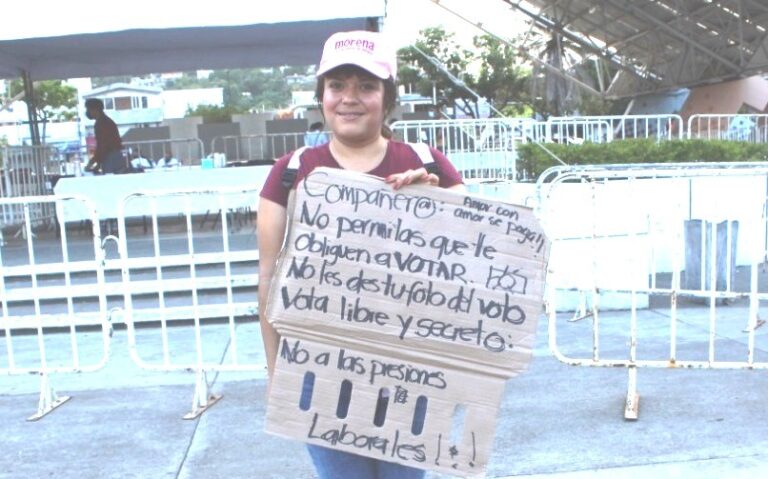 morena
Compañer@:
Amor con
amor se paga!!
No permitas que te
obliguen a VOTAR.
No les des tu foto del voto
Vota libre y secret@:
No a las presiones
Laborales!!